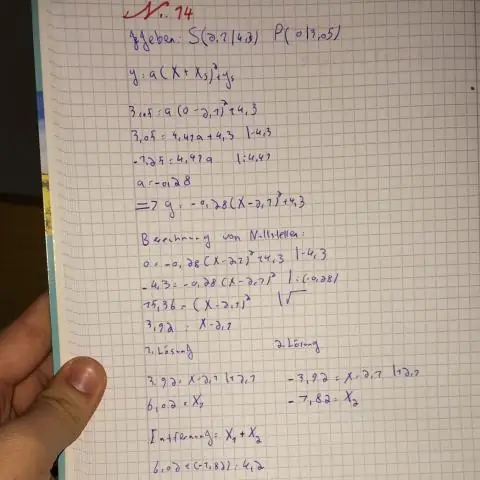 Nr. 14
gegeben: S(2,1|4,3) P(0|3,05)
y=a(x+xs)²+ys
3,05=a(0-2,1)²+4,3
3,05=4,41a+4,3 |-4,3
-1,25=4,41a |:4,41
a=-0,28
=> y=-0,28(x-2,1)²+4,3
Berechnung von Nullstellen:
0=-0,28(x-2,1)²+4,3 |-4,3
-4,3=-0,28(x-2,1)² |:(-0,28)
15,36=(x-2,1)² |√
3,92=x-2,1
1. Lösung 2. Lösung
3,92=x-2,1 |+2,1 -3,92=x-2,1 |+2,1
6,02=x₁ -1,82=x₂
Entfernung= x₁+x₂
6,02+(-1,82)=4,2